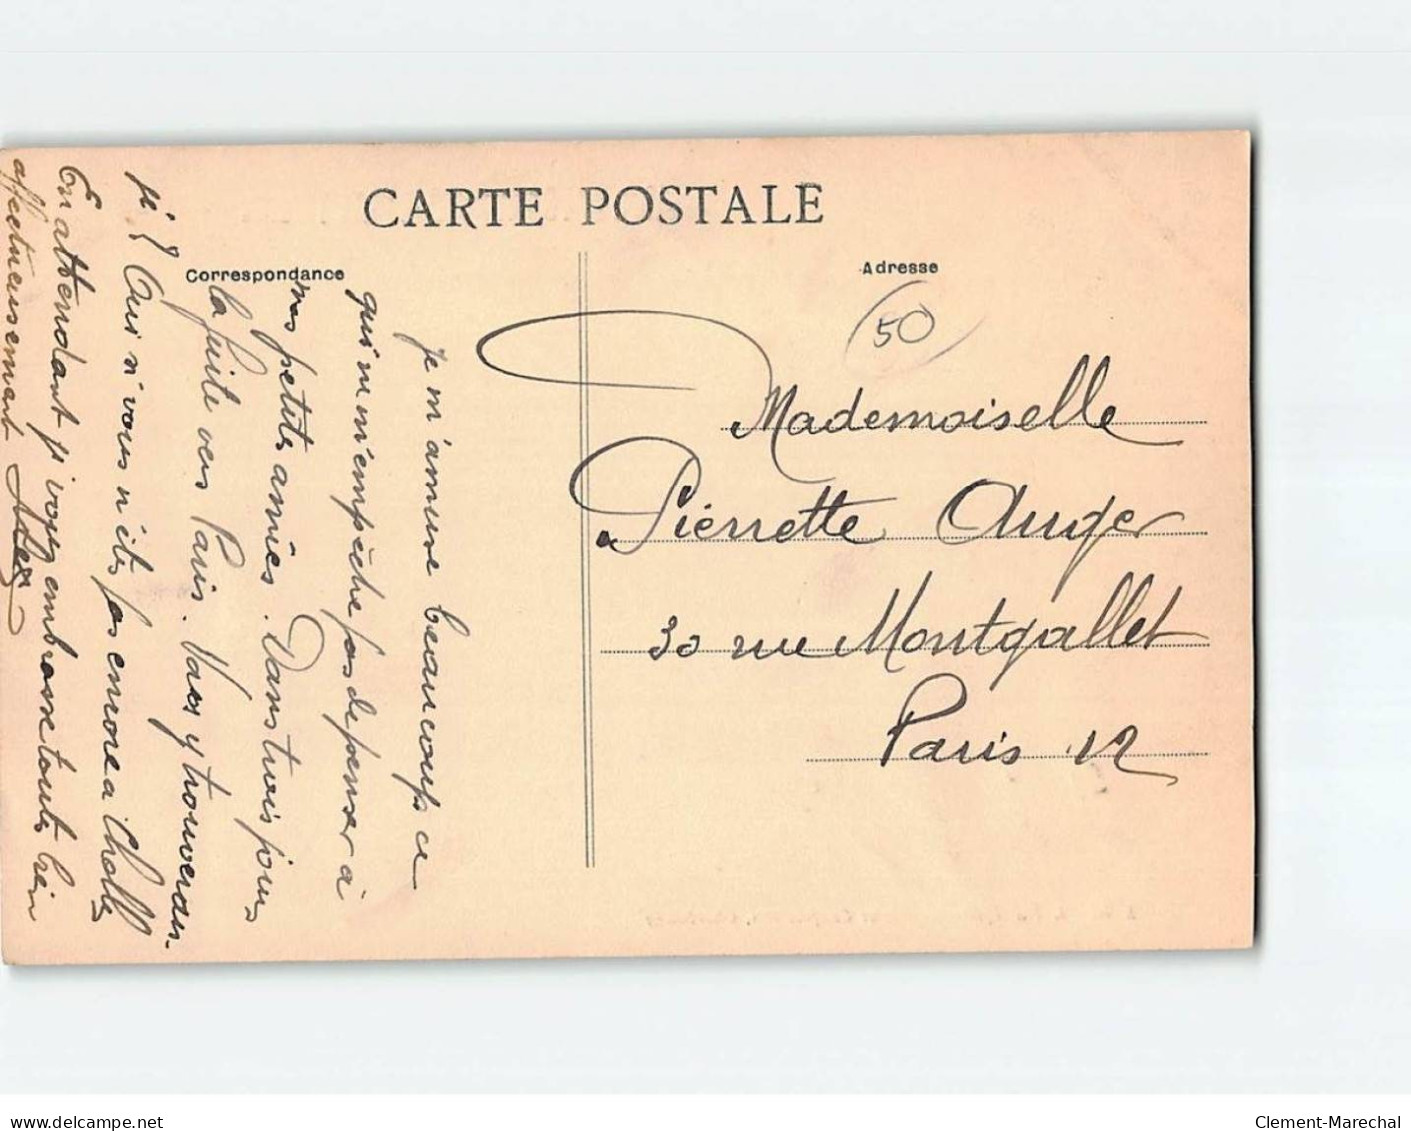 CARTE POSTALE
Correspondance
Adresse
50
Je m'amuse beaucoup ce
qui ne m'empêche pas de penser à
mes petites amies. Dans trois jours
la fuite vers Paris. Vous y trouverai-
je ? Oui si vous n'êtes pas encore à Chelles
En attendant je vous embrasse toutes bien
affectueusement
Mademoiselle
Pierrette Auger
30 rue Montgallet
Paris 12
www.delcampe.net
Clement-Marechal